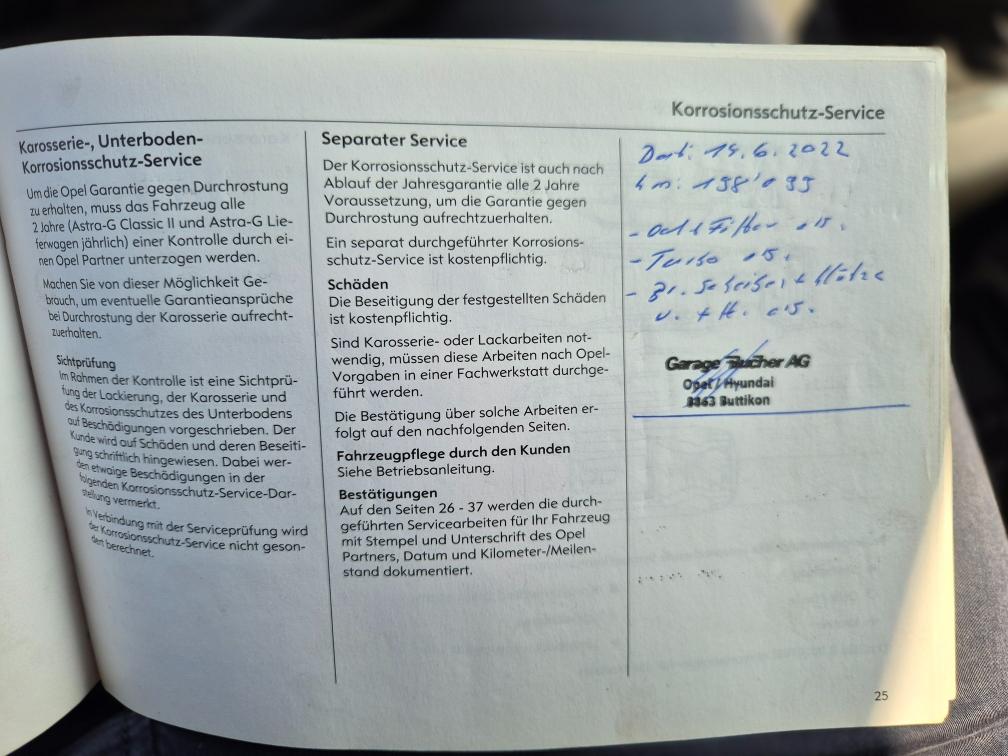 Korrosionsschutz-Service
Karosserie-, Unterboden-
Korrosionsschutz-Service
Um die Opel Garantie gegen Durchrostung
zu erhalten, muss das Fahrzeug alle
2 Jahre (Astra-G Classic II und Astra-G Lie-
ferwagen jährlich) einer Kontrolle durch ei-
nen Opel Partner unterzogen werden.
Machen Sie von dieser Möglichkeit Ge-
brauch, um eventuelle Garantieansprüche
bei Durchrostung der Karosserie aufrecht-
zuerhalten.
Sichtprüfung
Im Rahmen der Kontrolle ist eine Sichtprü-
fung der Lackierung, der Karosserie und
des Korrosionsschutzes des Unterbodens
auf Beschädigungen vorgeschrieben. Der
Kunde wird auf Schäden und deren Beseiti-
gung schriftlich hingewiesen. Dabei wer-
den etwaige Beschädigungen in der
folgenden Korrosionsschutz-Service-Dar-
stellung vermerkt.
In Verbindung mit der Serviceprüfung wird
der Korrosionsschutz-Service nicht geson-
dert berechnet.
Separater Service
Der Korrosionsschutz-Service ist auch nach
Ablauf der Jahresgarantie alle 2 Jahre
Voraussetzung, um die Garantie gegen
Durchrostung aufrechtzuerhalten.
Ein separat durchgeführter Korrosions-
schutz-Service ist kostenpflichtig.
Schäden
Die Beseitigung der festgestellten Schäden
ist kostenpflichtig.
Sind Karosserie- oder Lackarbeiten not-
wendig, müssen diese Arbeiten nach Opel-
Vorgaben in einer Fachwerkstatt durchge-
führt werden.
Die Bestätigung über solche Arbeiten er-
folgt auf den nachfolgenden Seiten.
Fahrzeugpflege durch den Kunden
Siehe Betriebsanleitung.
Bestätigungen
Auf den Seiten 26 - 37 werden die durch-
geführten Servicearbeiten für Ihr Fahrzeug
mit Stempel und Unterschrift des Opel
Partners, Datum und Kilometer-/Meilen-
stand dokumentiert.
Dat: 14.6.2022
km: 198'099
- Oel + Filter ers.
- Turbo ers.
- Br. Scheiben + Klötze
v. + H. ers.
Garage Bucher AG
Opel / Hyundai
8863 Buttikon
25